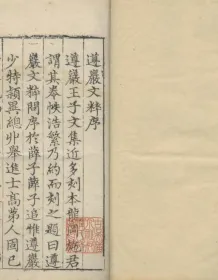 遵巖文粹序
遵巖王子文集近多刻本龍岡施君
謂其卷帙浩繁乃約而刻之題曰遵
巖文粹問序於薛子薛子追惟遵巖
少特穎異總丱舉進士高第人固已